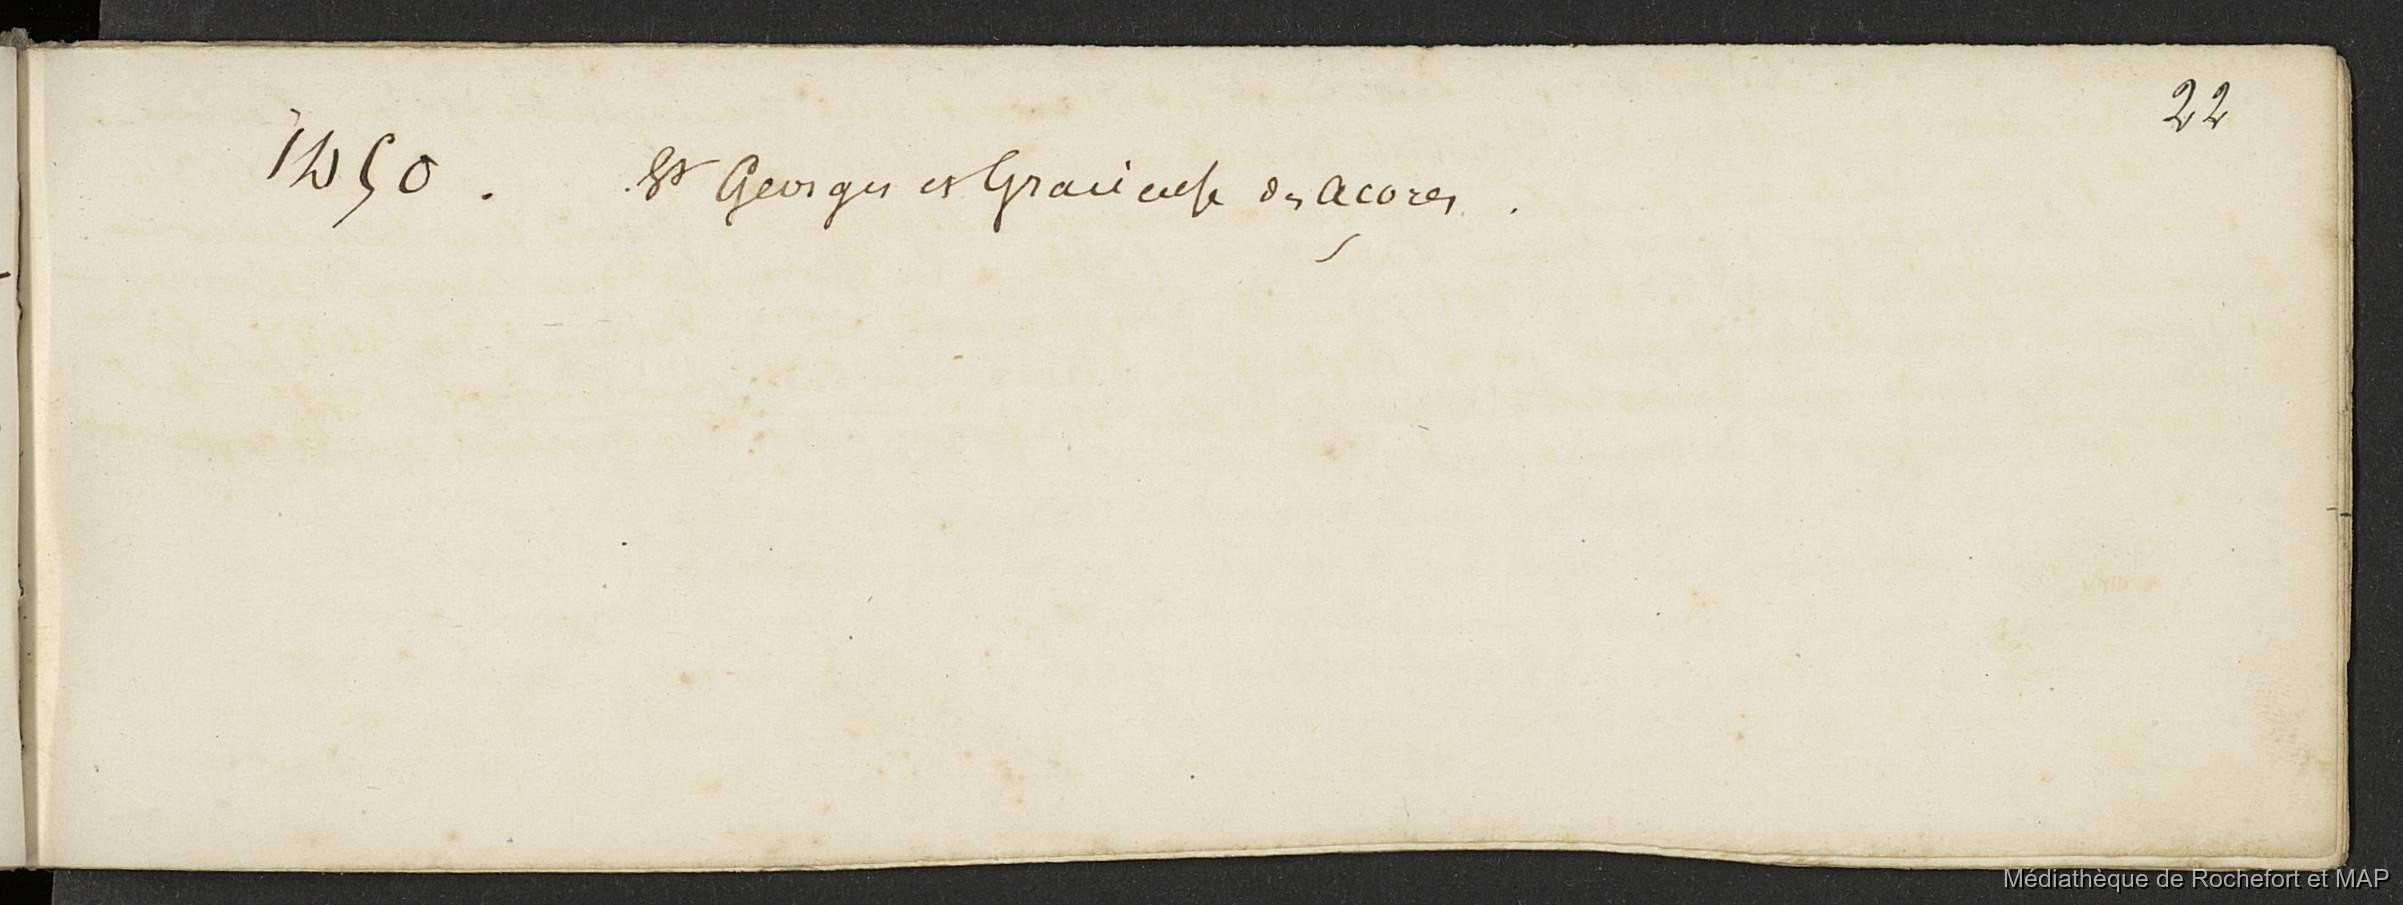 22
1450. St Georges et Gracieuse des açores.
Médiathèque de Rochefort et MAP